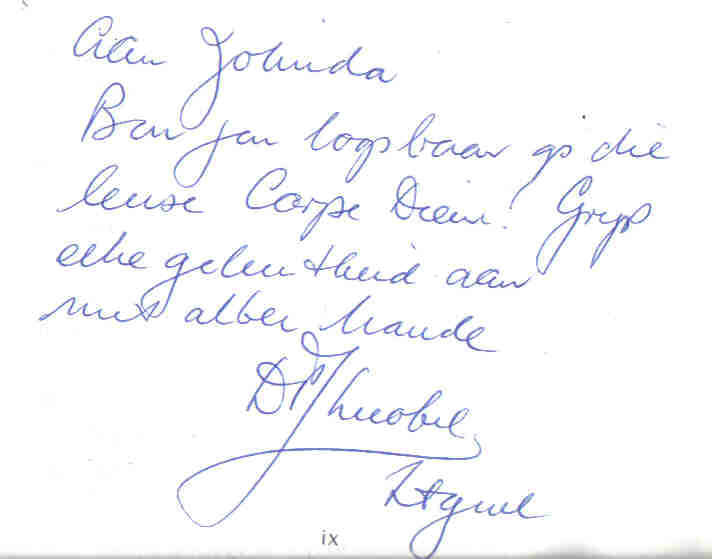 Aan Jolinda
Bou jou loopbaan op die
leuse Carpe Diem! Gryp
elke geleentheid aan
met albei hande
ix